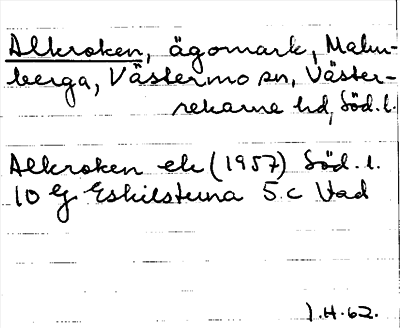 Alkroken, ägomark, Malm-
berga, Västermo sn, Väster-
rekarne hd, Söd.l.
Alkroken ek (1957) Söd.l.
10 G Eskilstuna 5 c Vtad
J.H.62.